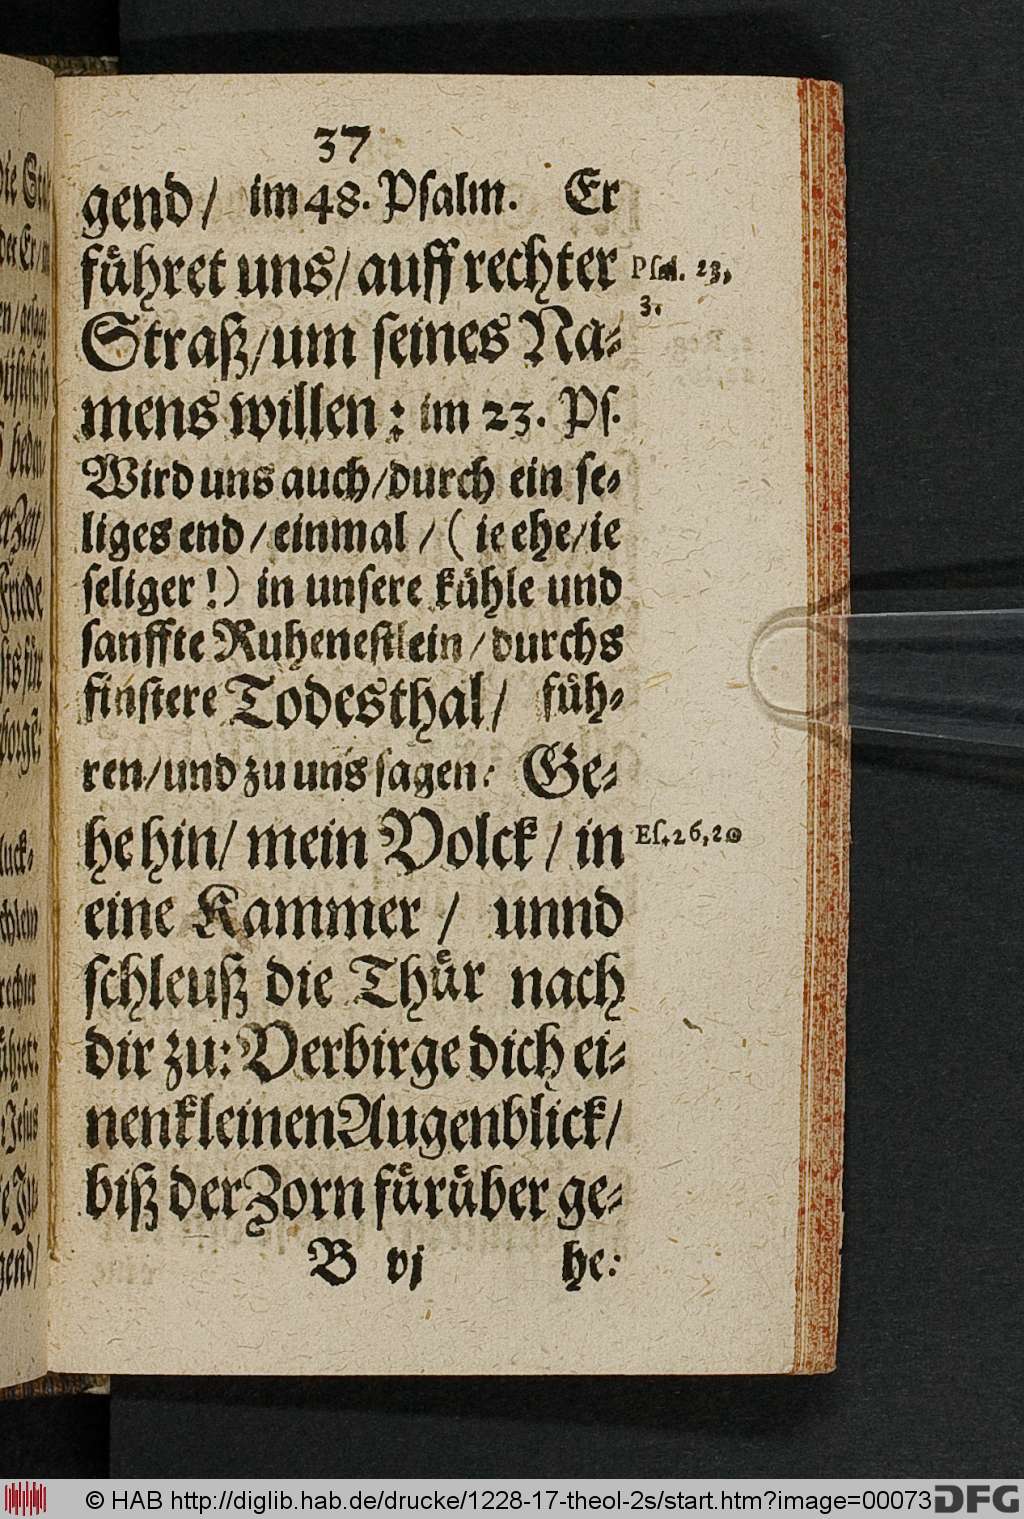 37
gend/ im 48. Psalm. Er
fuͤhret uns/ auff rechter
Psal. 23,
3.
Straß/um seines Na-
mens willen: im 23. Ps.
Wird uns auch/durch ein se-
liges end/einmal/( ie ehe/ie
seliger!) in unsere kuͤhle und
sanffte Ruhenestlein/durchs
finstere Todesthal/ fuͤh-
ren/und zu uns sagen: Ge-
he hin/ mein Volck/ in
Es. 26, 20
eine Kammer/ unnd
schleuß die Thuͤr nach
dir zu: Verbirge dich ei-
nen kleinen Augenblick/
biß der Zorn fuͤruͤber ge-
B vj he:
© HAB http://diglib.hab.de/drucke/1228-17-theol-2s/start.htm?image=00073
DFG